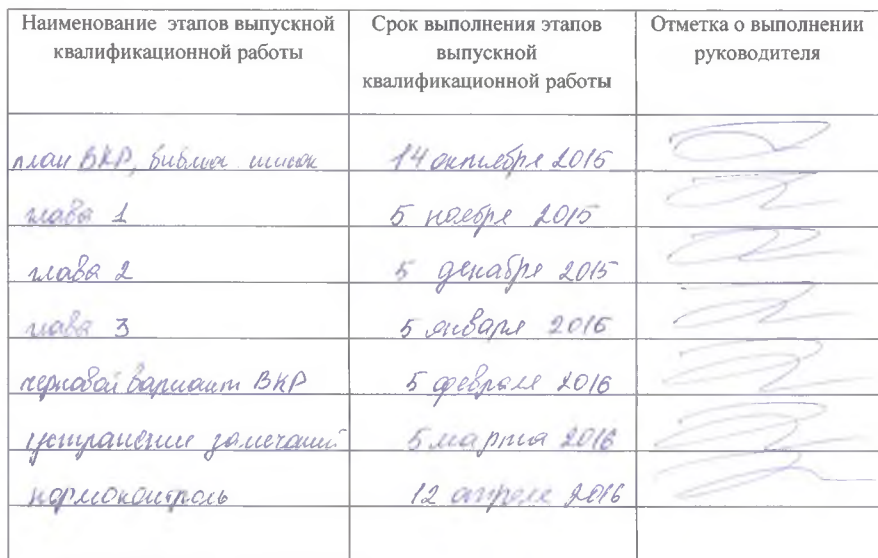 Наименование этапов выпускной квалификационной работы
Срок выполнения этапов выпускной квалификационной работы
Отметка о выполнении руководителя
план ВКР, библиог список 14 октября 2015
глава 1 5 ноября 2015
глава 2 5 декабря 2015
глава 3 5 января 2016
черновой вариант ВКР 5 февраля 2016
устранение замечаний 5 марта 2016
нормоконтроль 12 апреля 2016